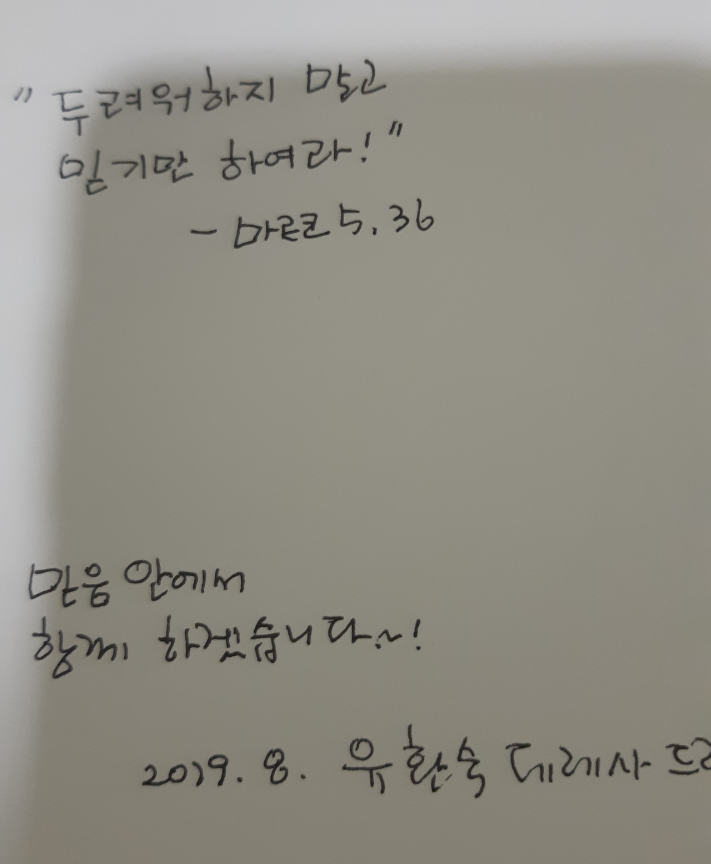 "두려워하지 말고
믿기만 하여라!"
- 마르코 5, 36
믿음 안에서
함께 하겠습니다~!
2019. 8. 유환숙 데레사 드